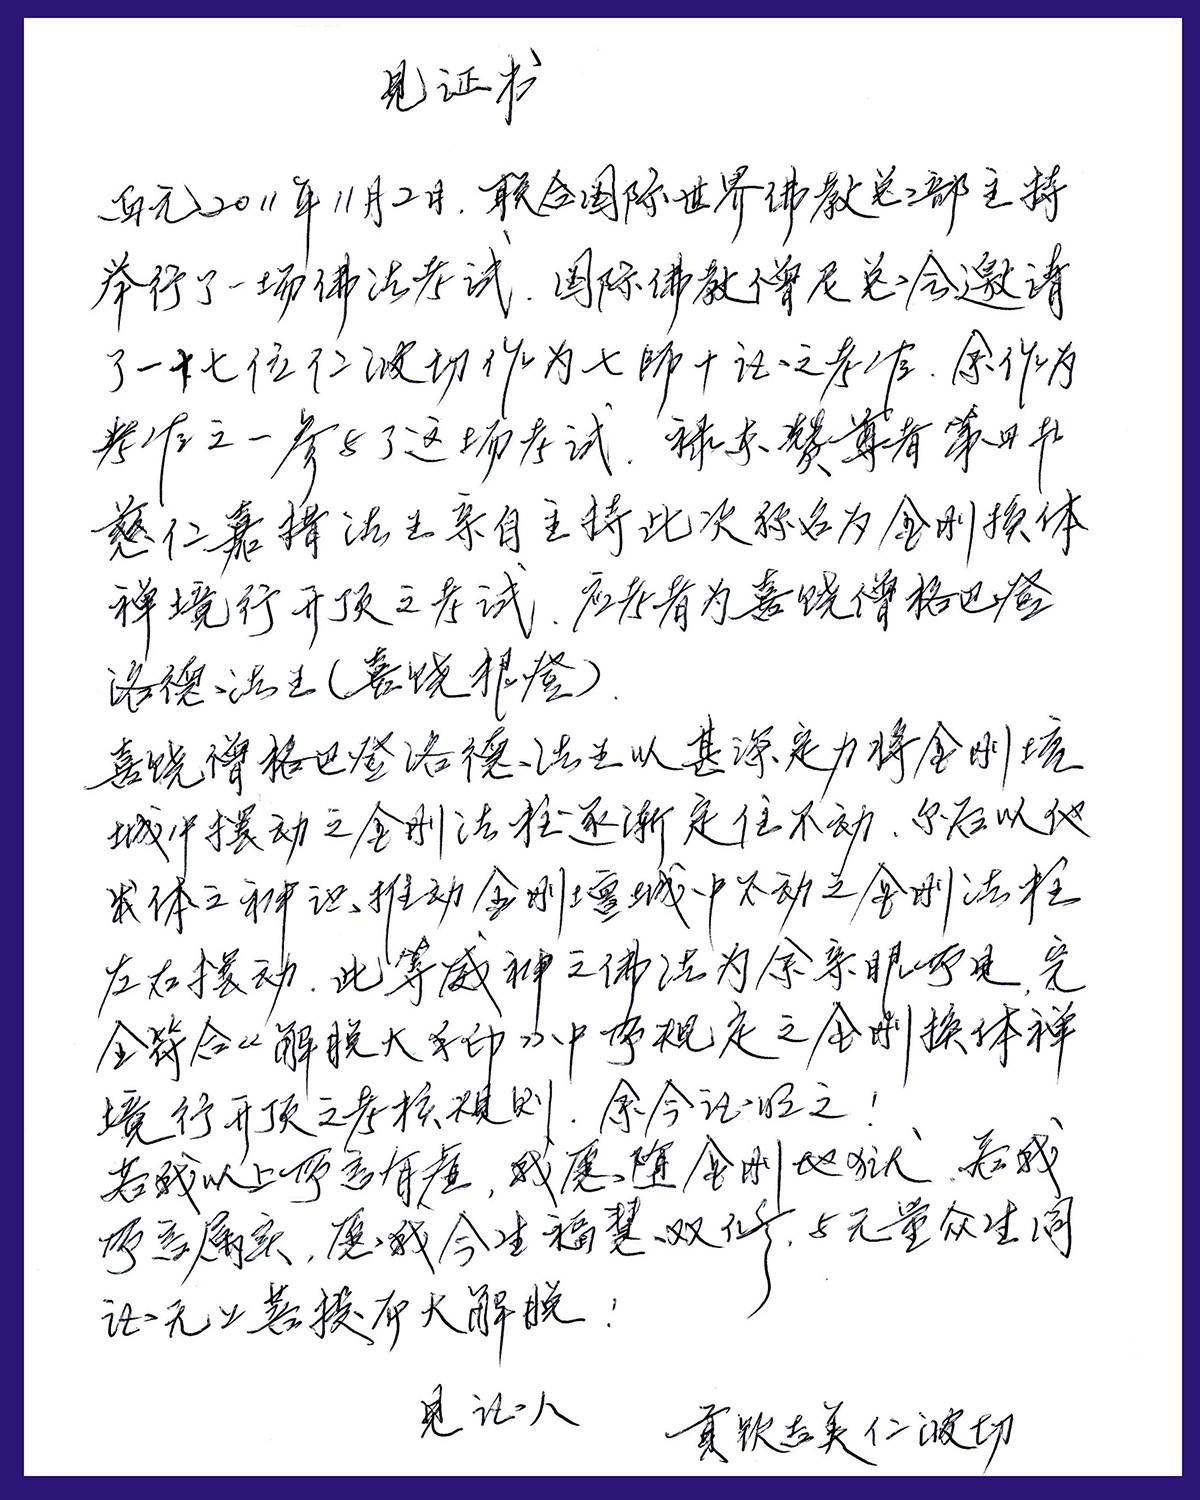 见证书
西元2011年11月2日,联合国际世界佛教总部主持
举行了一场佛法考试.国际佛教僧尼总会邀请
了一十七位仁波切作为七师十证之考官.余作为
考官之一参与了这场考试.禄东赞尊者第四扎
慈仁嘉措法王亲自主持此次称名为金刚换体
禅境行开顶之考试.应考者为喜饶僧格巴登
洛德法王(喜饶根登).
喜饶僧格巴登洛德法王以甚深定力将金刚坛
城中摆动之金刚法柱逐渐定住不动.尔后以他
出体之神识,推动金刚坛城中不动之金刚法柱
左右摆动.此等威神之佛法为余亲眼所见,完
全符合《解脱大手印》中所规定之金刚换体禅
境行开顶之考核规则.余今证明之!
若我以上所言有虚,我愿随金刚地狱.若我
所言属实,愿我今生福慧双修,与无量众生同
证无上菩提而大解脱!
见证人 贡钦吉美仁波切